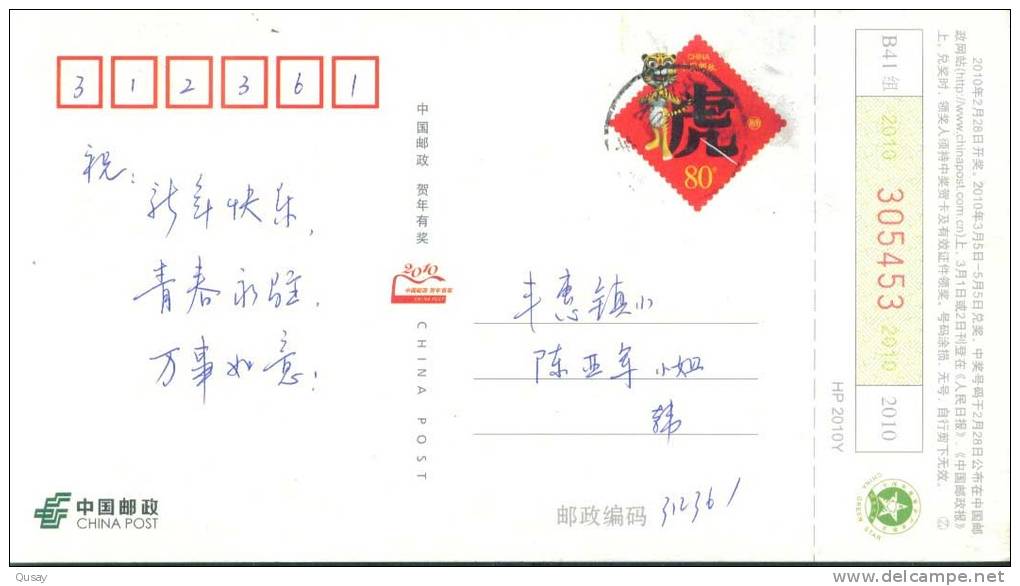 3 1 2 3 6 1
祝：
新年快乐，
青春永驻，
万事如意！
中国邮政 贺年有奖
2010
中国邮政 贺年有奖
CHINA POST
CHINA POST
CHINA
虎
80
丰惠镇小
陈亚军 小姐
韩
中国邮政
CHINA POST
邮政编码 312361
HP 2010Y
B41组
2010
305453
2010
2010
2010年2月28日开奖，2010年3月5日-5月5日兑奖。中奖号码于2月28日公布在中国邮
政网站(http://www.chinapost.com.cn)上，3月1日或2日刊登在《人民日报》、《中国邮政报》
上。兑奖时，领奖人须持中奖贺卡及有效证件领奖。号码涂损、无号、自行剪下无效。
CHINA
GREEN STAR
Qusay
www.delcampe.net